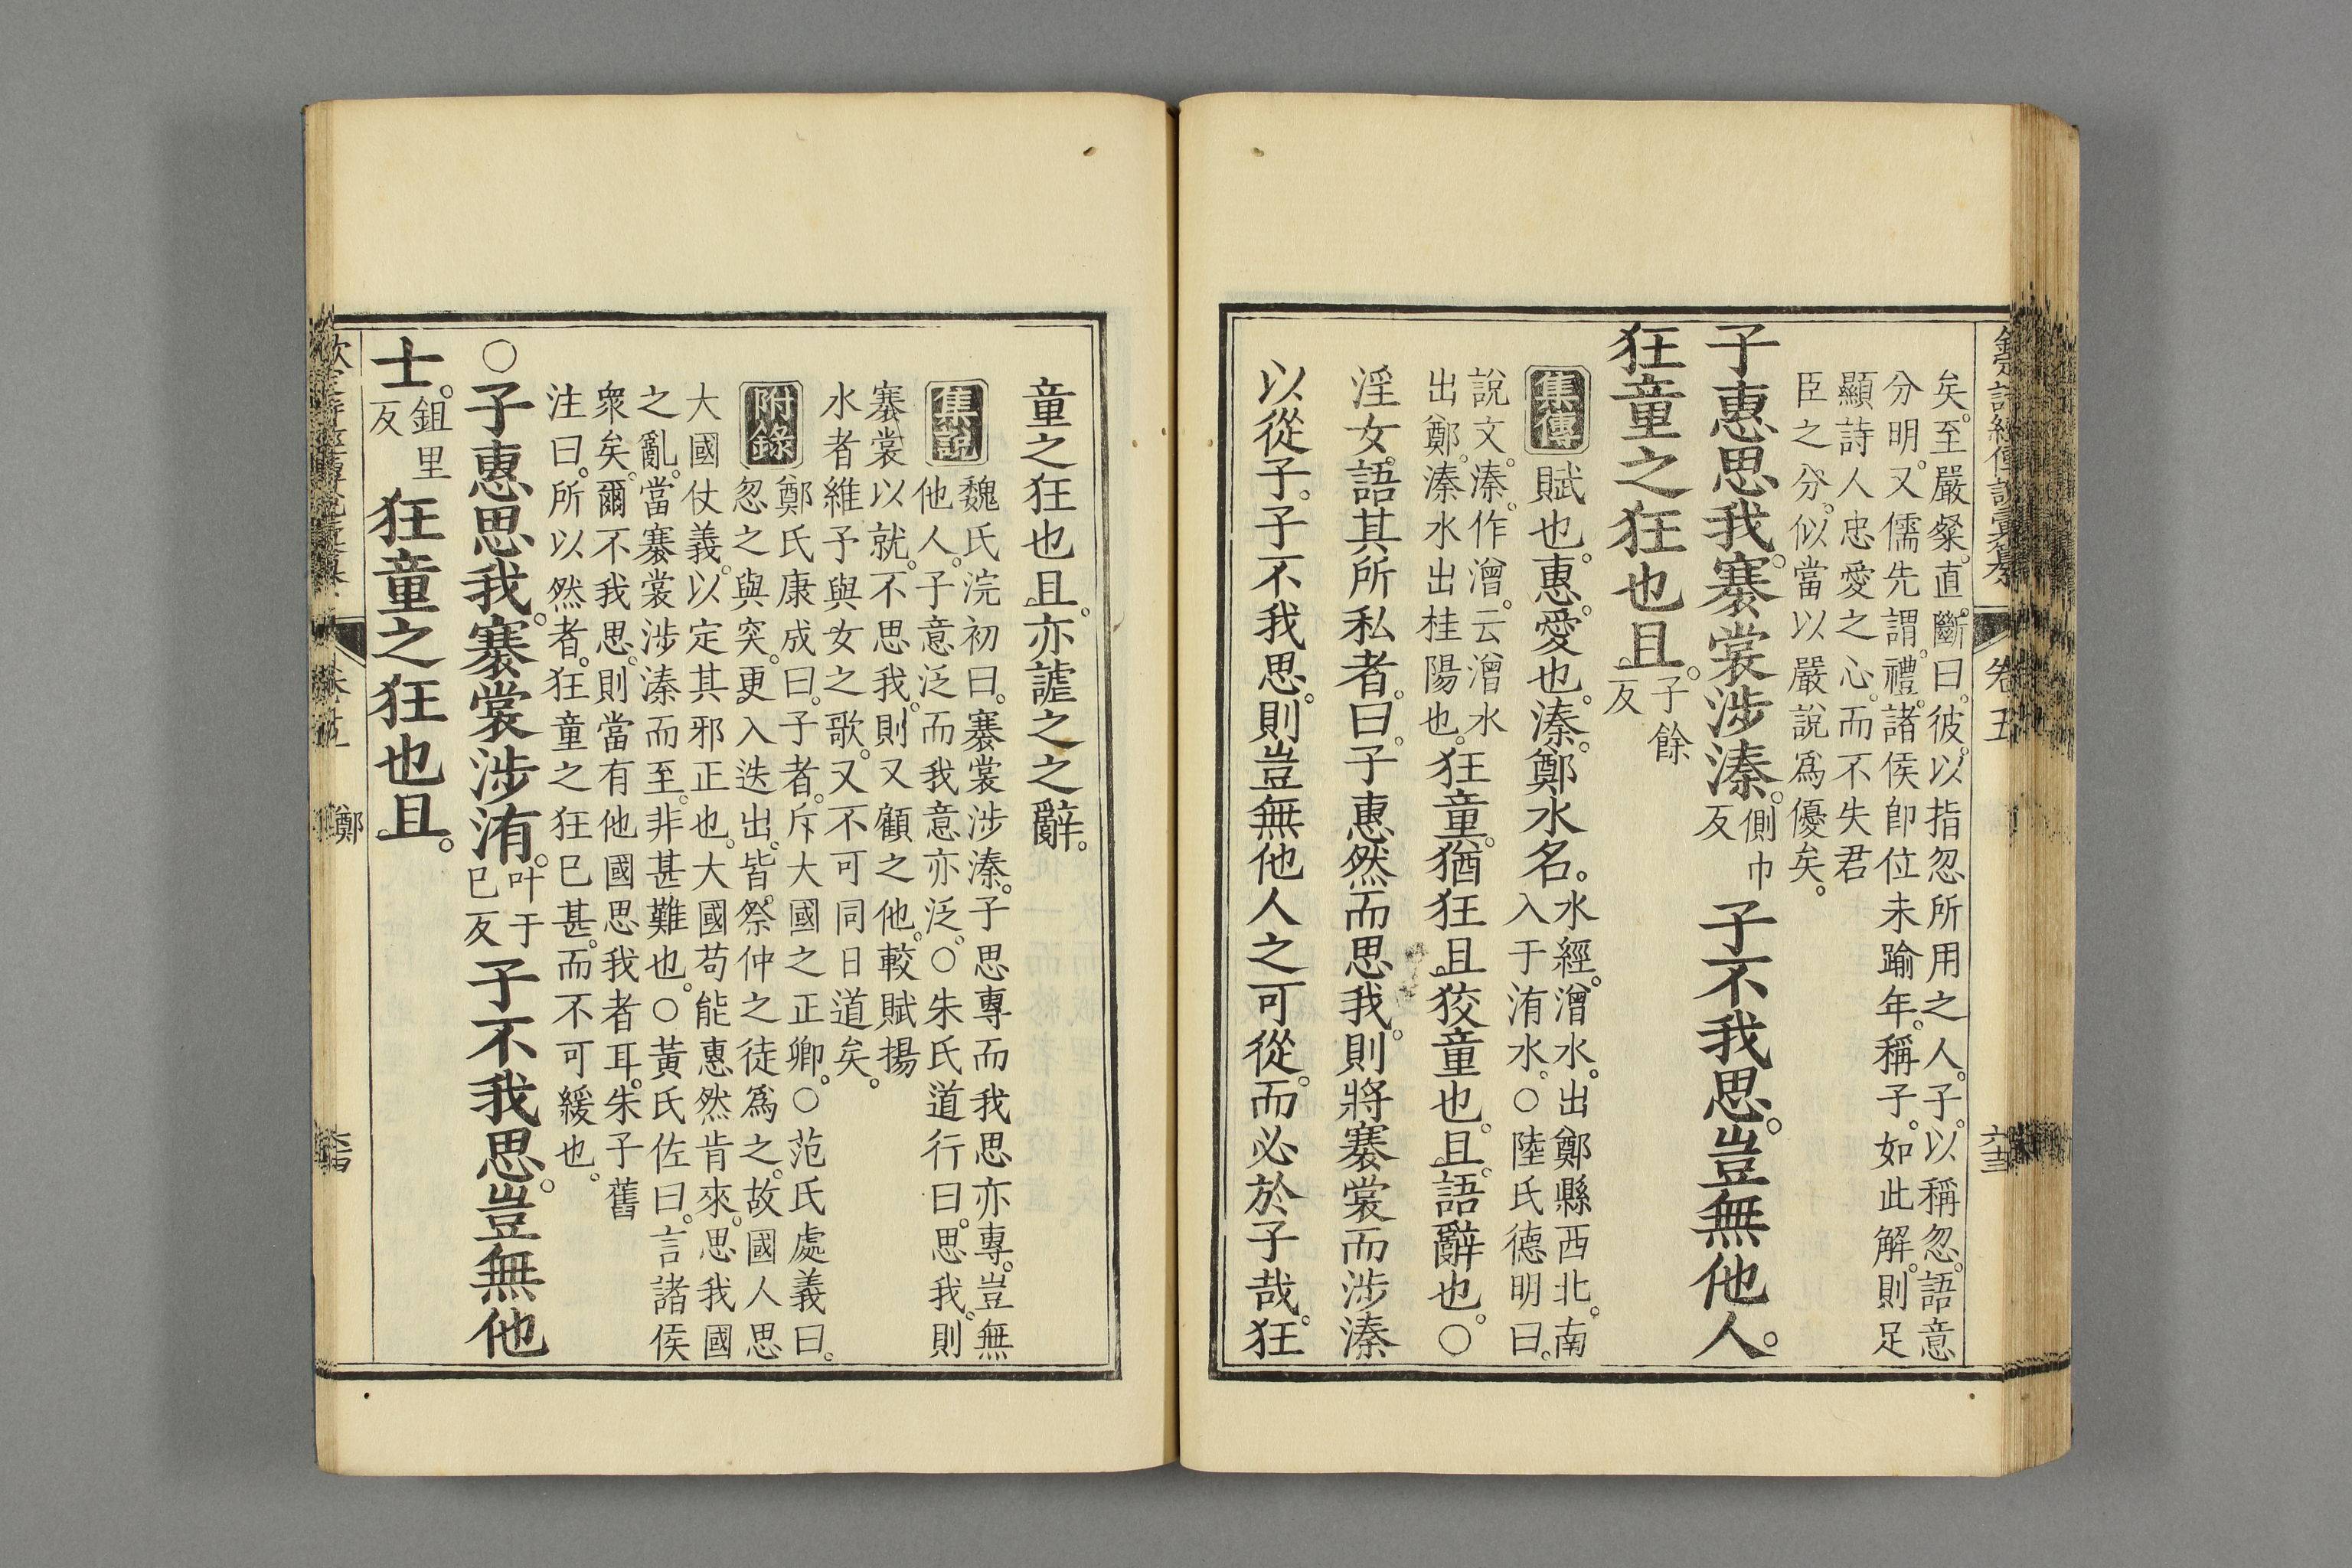 矣。至嚴粲。直斷曰。彼。以指忽所用之人。子。以稱忽。語意
分明。又儒先謂。禮。諸侯卽位未踰年。稱子。如此解。則足
顯詩人忠愛之心。而不失君
臣之分。似當以嚴說爲優矣。
子惠思我。褰裳涉溱。側巾反 子不我思。豈無他人。
狂童之狂也且。子餘反
集傳 賦也。惠。愛也。溱。鄭水名。水經。潧水。出鄭縣西北。南
入于洧水。○陸氏德明曰。
說文。溱。作潧。云潧水
出鄭。溱水出桂陽也。狂童。猶狂且狡童也。且。語辭也。○
淫女。語其所私者。曰。子惠然而思我。則將褰裳而涉溱
以從子。子不我思。則豈無他人之可從。而必於子哉。狂
卷五
六十三
童之狂也且。亦謔之之辭。
集說 魏氏浣初曰。褰裳涉溱。子思專而我思亦專。豈無
他人。子意泛而我意亦泛。○朱氏道行曰。思我。則
褰裳以就。不思我。則又顧之他。較賦揚
水者維予與女之歌。又不可同日道矣。
附錄 鄭氏康成曰。子者。斥大國之正卿。○范氏處義曰。
忽之與突。更入迭出。皆。祭仲之徒爲之。故國人思
大國仗義。以定其邪正也。大國苟能惠然肯來。思我國
之亂。當褰裳涉溱而至。非甚難也。○黃氏佐曰。言諸侯
衆矣。爾不我思。則當有他國思我者耳。朱子舊
注曰。所以然者。狂童之狂已甚。而不可緩也。
○子惠思我。褰裳涉洧。叶于已反 子不我思。豈無他
士。鉏里反 狂童之狂也且。
鄭